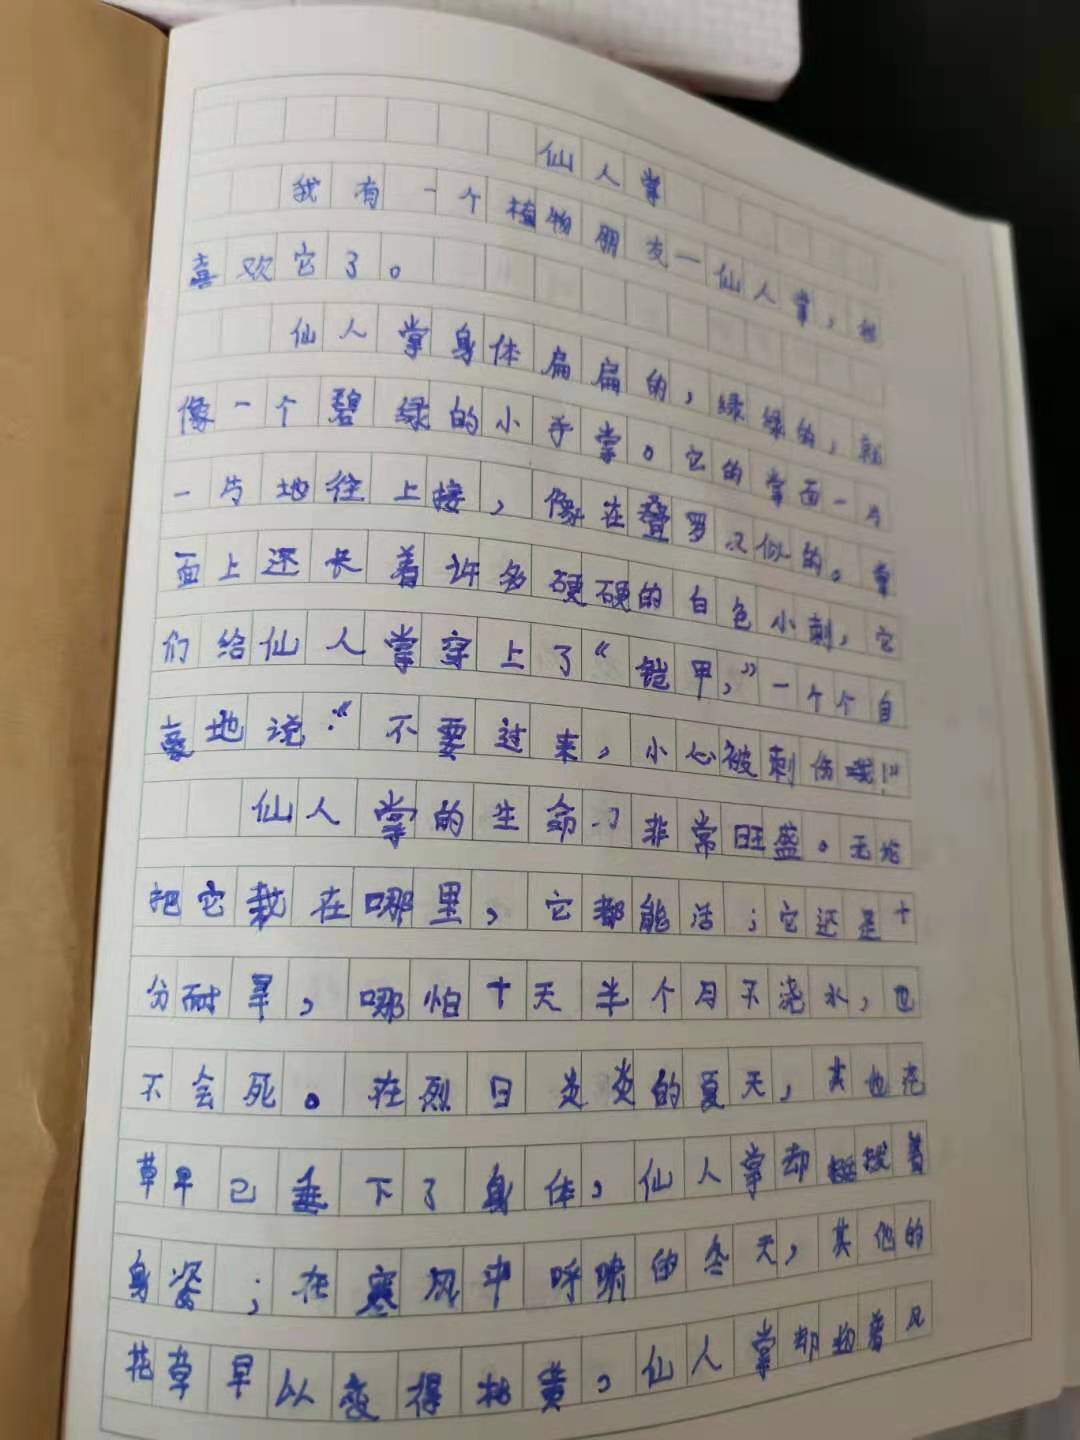 仙人掌
我有一个植物朋友—仙人掌，
喜欢它了。
仙人掌身体扁扁的，绿绿的，就
像一个碧绿的小手掌。它的掌面一片
一片地往上接，像在叠罗汉似的。掌
面上还长着许多硬硬的白色小刺，它
们给仙人掌穿上了“铠甲，”一个个自
豪地说：“不要过来，小心被刺伤哦！”
仙人掌的生命力非常旺盛。无论
把它栽在哪里，它都能活；它还是十
分耐旱，哪怕十天半个月不浇水，也
不会死。在烈日炎炎的夏天，其他花
草早已垂下了身体，仙人掌却挺拔着
身姿；在寒风中呼啸的冬天，其他的
花草早以变得枯黄，仙人掌却迎着风